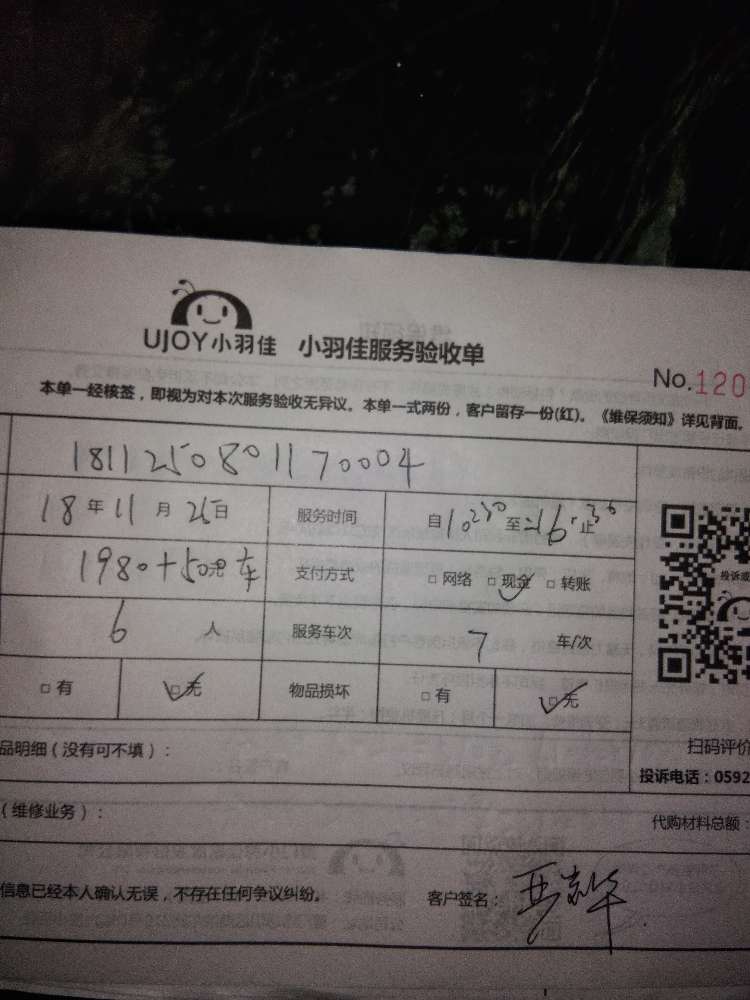 UJOY小羽佳 小羽佳服务验收单
No.120
本单一经核签，即视为对本次服务验收无异议。本单一式两份，客户留存一份(红)。《维保须知》详见背面。
1811250801170004
18年11月26日 服务时间 自10:30至16:36止
1980+50 车 支付方式 □网络 □现金 □转账
投诉或
6人 服务车次 7车/次
□有 □无 物品损坏 □有 □无
品明细（没有可不填）：
扫码评价
投诉电话：0592
（维修业务）：
代购材料总额：
信息已经本人确认无误，不存在任何争议纠纷。 客户签名：